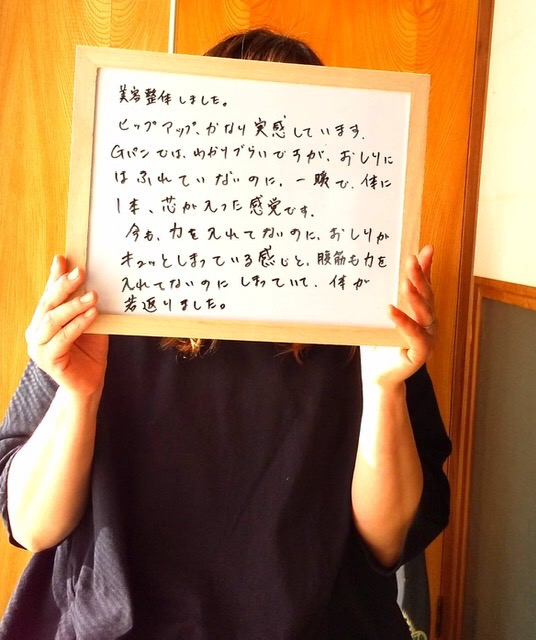 美容整体しました。
ヒップアップ、かなり実感しています。
Gパンでは、わかりづらいですが、おしりに
はふれていないのに、一瞬で、体に
1本、芯が入った感覚です。
今も、力を入れてないのに、おしりが
キュッとしまっている感じと、腹筋も力を
入れてないのにしまっていて、体が
若返りました。